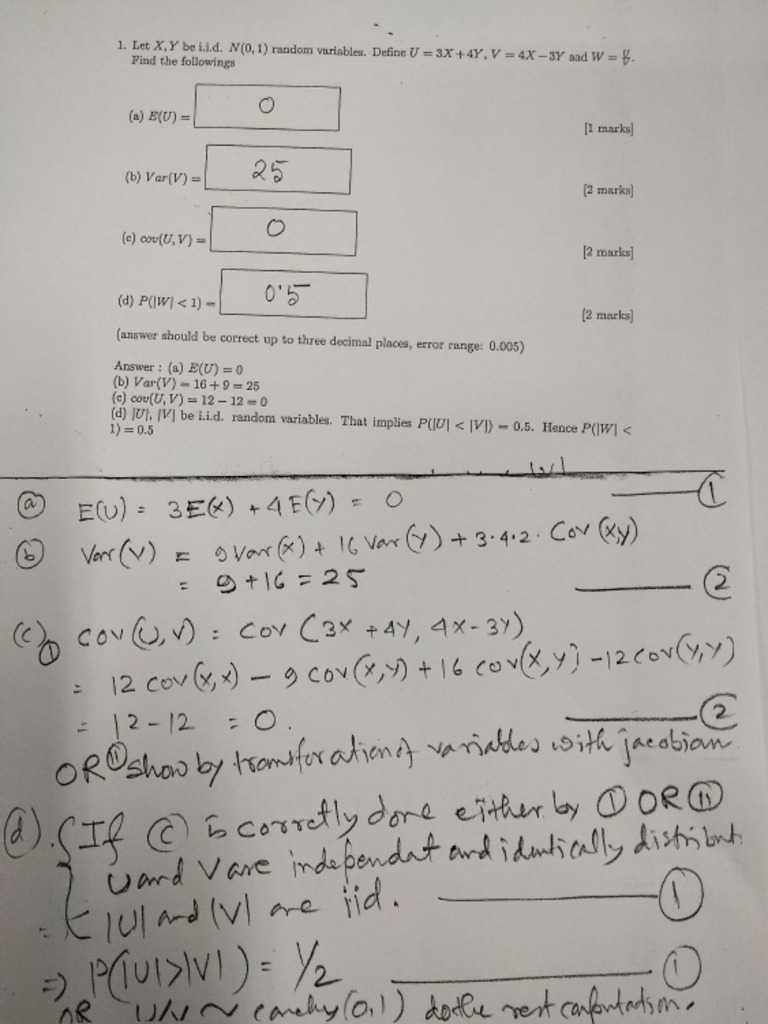 1. Let X, Y be i.i.d. N(0, 1) random variables. Define U = 3X + 4Y, V = 4X − 3Y and W = U/V.
Find the followings
(a) E(U) = 0
[1 marks]
(b) Var(V) = 25
[2 marks]
(c) cov(U, V) = 0
[2 marks]
(d) P(|W| < 1) = 0.5
[2 marks]
(answer should be correct up to three decimal places, error range: 0.005)
Answer : (a) E(U) = 0
(b) Var(V) = 16 + 9 = 25
(c) cov(U, V) = 12 − 12 = 0
(d) |U|, |V| be i.i.d. random variables. That implies P(|U| < |V|) = 0.5. Hence P(|W| <
1) = 0.5
(a) E(U) = 3E(X) + 4E(Y) = 0 (1)
(b) Var(V) = 9 Var(X) + 16 Var(Y) + 3·4·2· Cov (XY)
= 9 + 16 = 25 (2)
(c) (I) Cov(U, V) = Cov (3X + 4Y, 4X − 3Y)
= 12 cov(X, X) − 9 cov(X, Y) + 16 cov(X, Y) − 12 cov(Y, Y)
= 12 − 12 = 0. (2)
OR (II) show by transforation of variables with jacobian.
(d). { If (c) is corretly done either by (I) OR (II)
U and V are independat and identically distribut.
= |U| and |V| are iid. (1)
⇒ P(|U|>|V|) = 1/2 (1)
OR U/V ~ cauchy(0,1) do the rest computation.